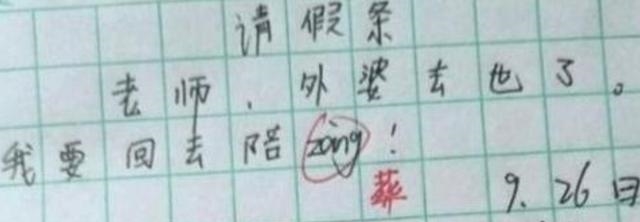 请假条
老师,外婆去也了。
我要回去陪zàng!
葬 9.26日